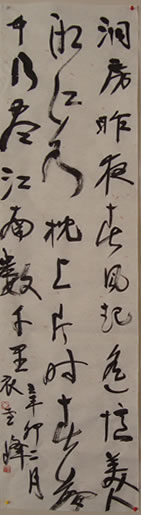 洞房昨夜春风起遥憶美人
湘江水枕上片时春梦
中行尽江南數千里
辛卯二月